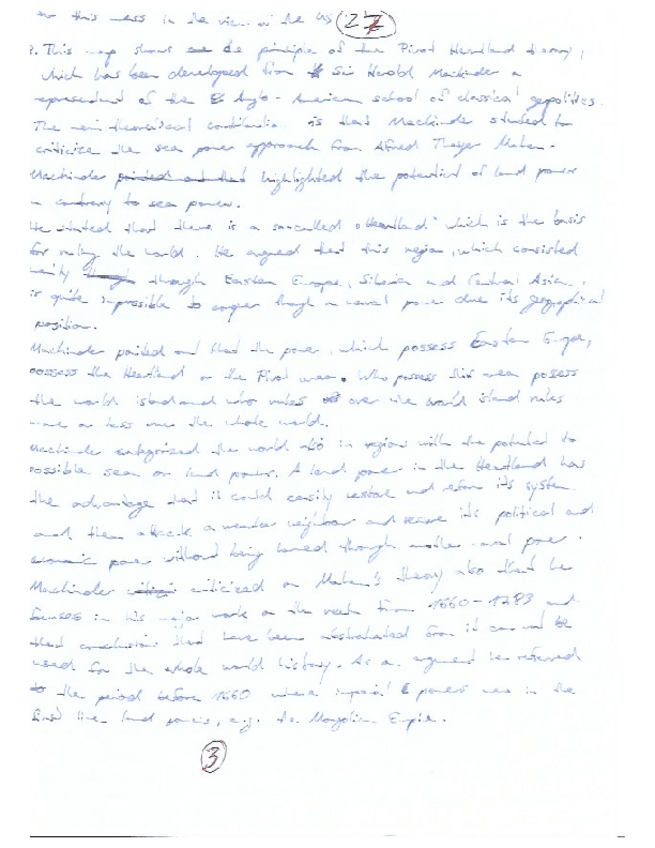 for this mess in the view of the US 27
?. This map shows the principle of the Pivot Heartland theory,
which has been developed from Sir Harold Mackinder a
representant of the Anglo-American school of classical geopolitics.
The main theoretical contribution is that Mackinder started to
criticize the sea power approach from Alfred Thayer Mahan.
Mackinder pointed out that highlighted the potential of land power
in contrary to sea power.
He stated that there is a so-called "Heartland" which is the basis
for ruling the world. He argued that this region, which consisted
mainly through Eastern Europe, Siberia and Central Asian,
is quite impossible to conquer through a naval power due its geographical
position.
Mackinder pointed out that the power, which possess Eastern Europe,
possess the Heartland or the Pivot area. Who possess this area possess
the world island and who rules over the world island rules
more or less over the whole world.
Mackinder categorized the world also in regions with the potential to
possible sea or land power. A land power in the Heartland has
the advantage that it could easily restore and reform its system
and then attack a weaker neighbour and its political and
economic power without being through another naval power.
Mackinder criticized on Mahan's theory also that he
focuses in his major work on the from 1660-1783 and
that conclusions that have been from it can not be
used for the whole world history. As a argument he referred
to the period before 1660 where imperial powers were in the
first line land powers, e.g. the Mongolian Empire.
3